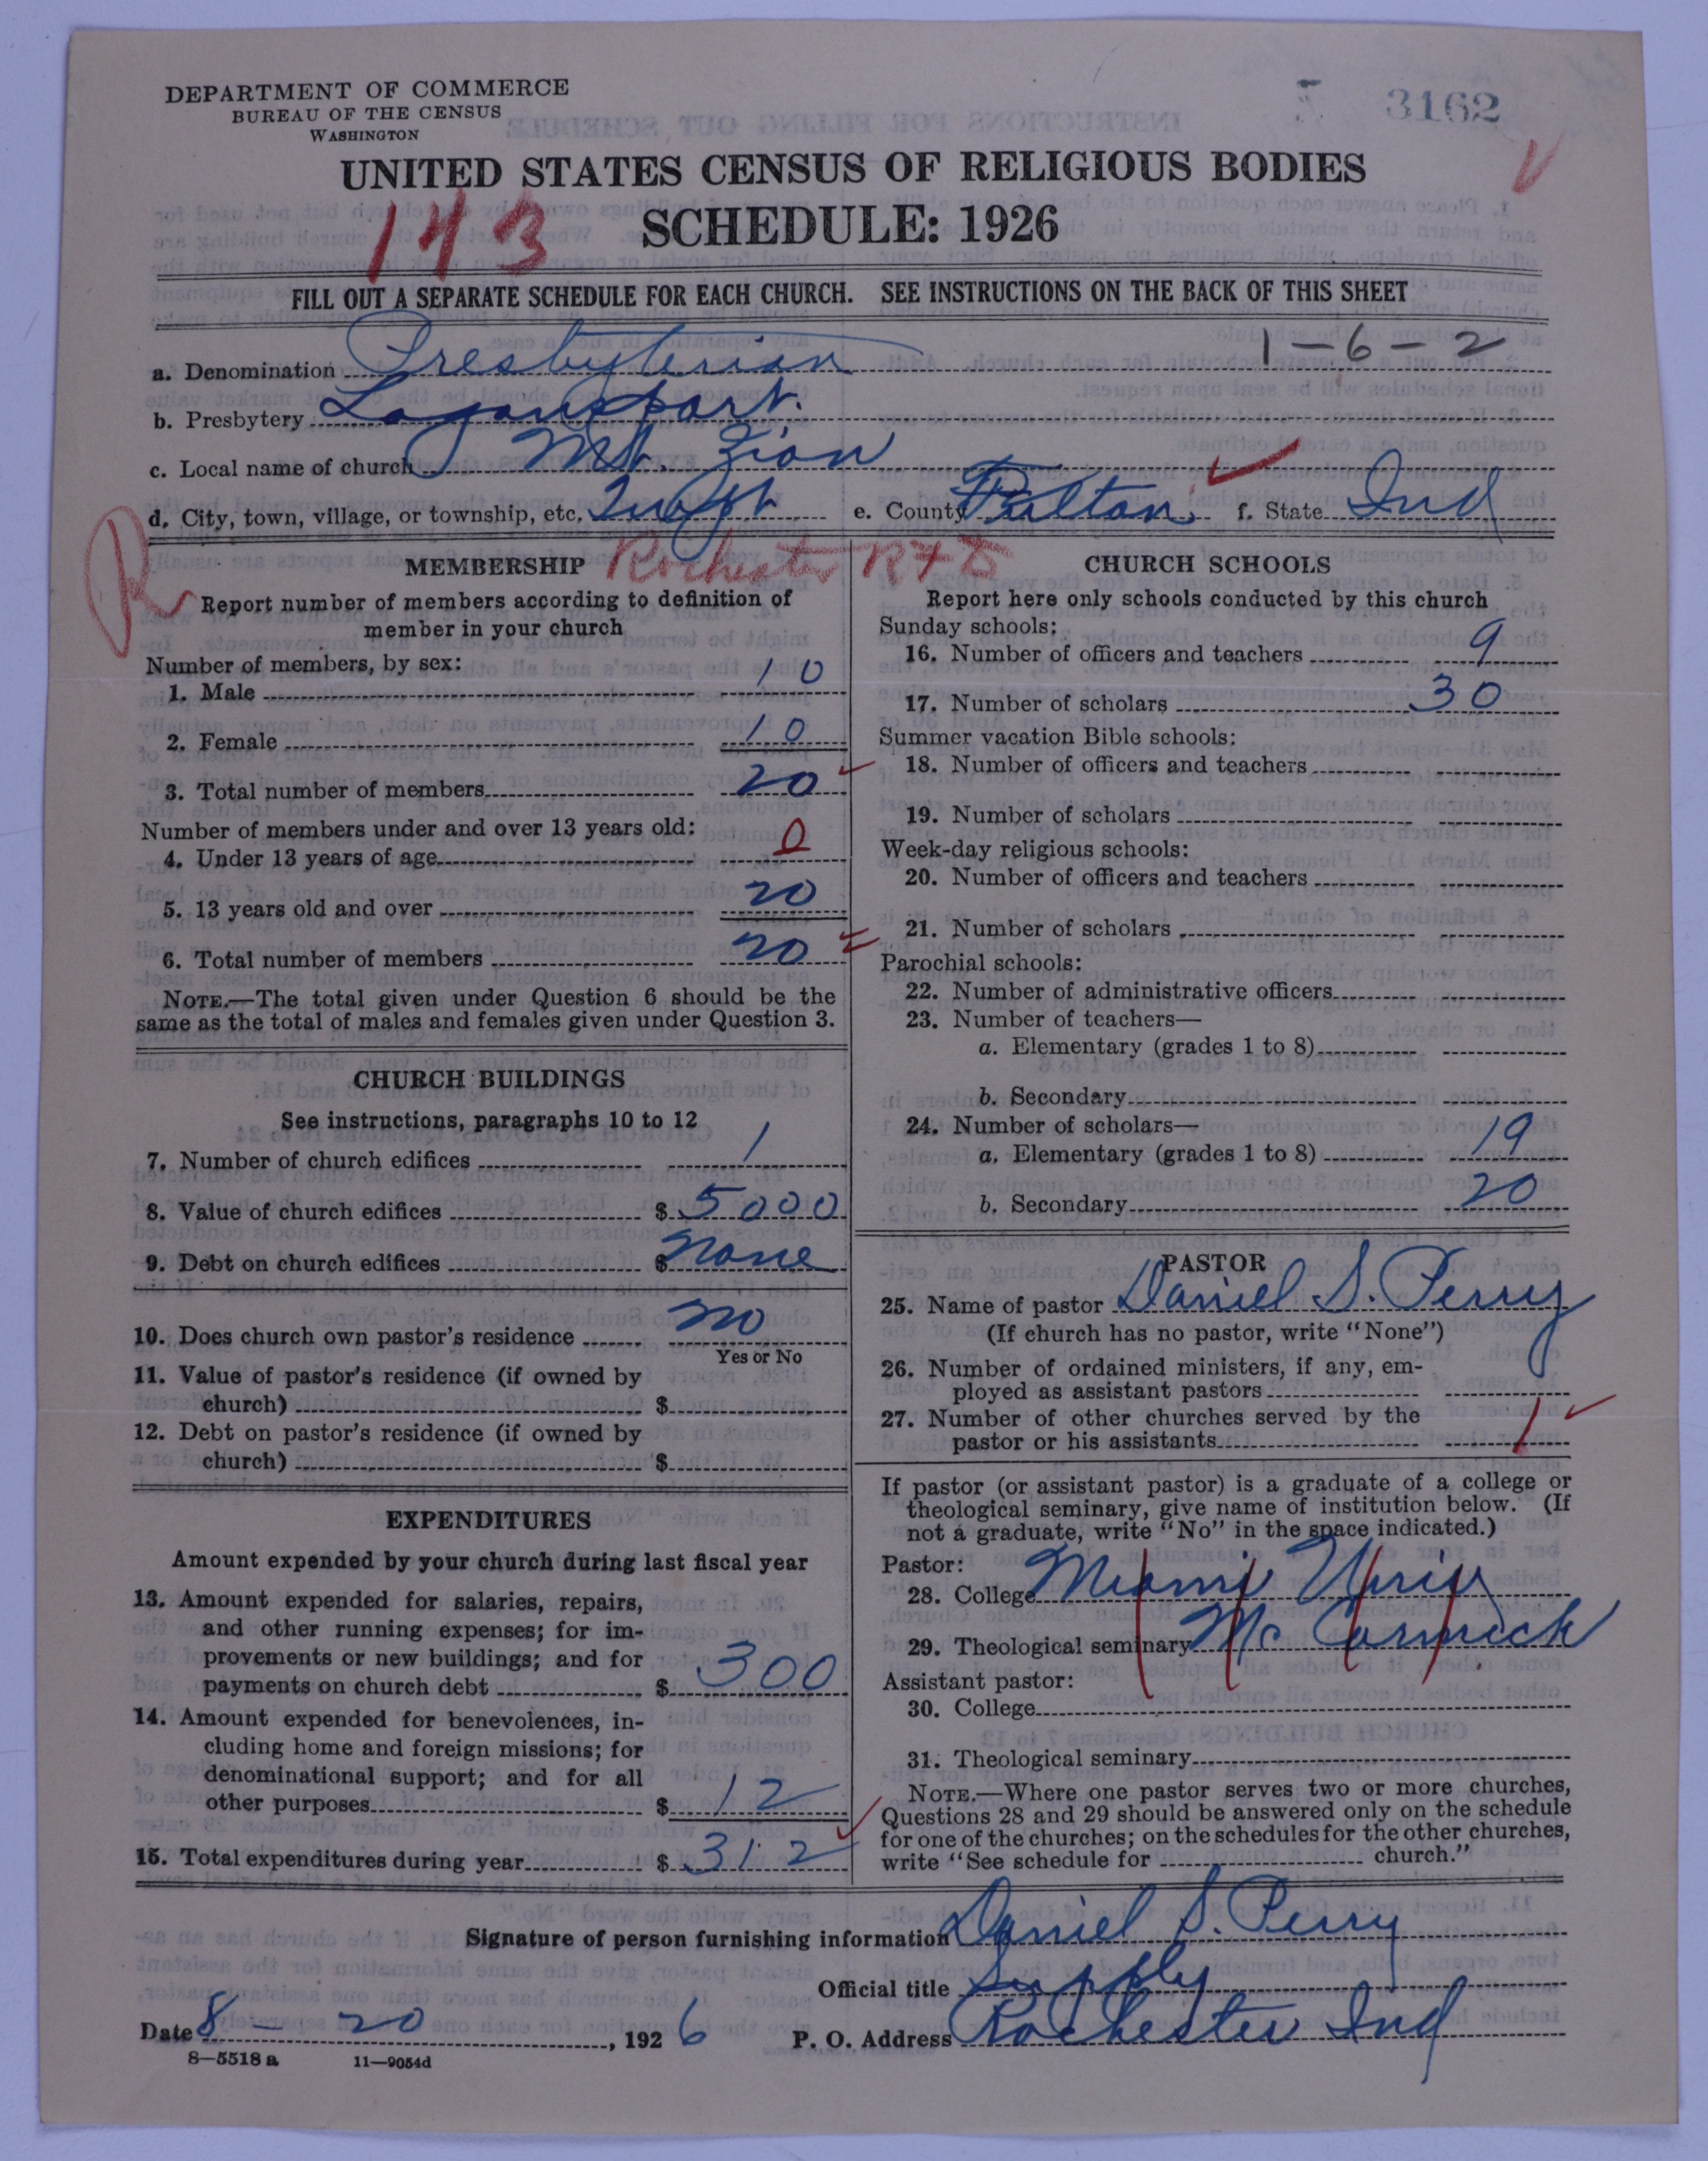 DEPARTMENT OF COMMERCE
BUREAU OF THE CENSUS
WASHINGTON
3162
UNITED STATES CENSUS OF RELIGIOUS BODIES
SCHEDULE: 1926
143
FILL OUT A SEPARATE SCHEDULE FOR EACH CHURCH. SEE INSTRUCTIONS ON THE BACK OF THIS SHEET
1-6-2
a. Denomination Presbyterian
b. Presbytery Logansport.
c. Local name of church Mt. Zion
d. City, town, village, or township, etc. e. County Fulton f. State Ind
R
Rochester RFD
MEMBERSHIP
Report number of members according to definition of
member in your church
Number of members, by sex:
1. Male 10
2. Female 10
3. Total number of members 20
Number of members under and over 13 years old:
4. Under 13 years of age 0
5. 13 years old and over 20
6. Total number of members 20
NOTE.—The total given under Question 6 should be the
same as the total of males and females given under Question 3.
CHURCH BUILDINGS
See instructions, paragraphs 10 to 12
7. Number of church edifices 1
8. Value of church edifices $ 5000
9. Debt on church edifices $ None
10. Does church own pastor's residence No
Yes or No
11. Value of pastor's residence (if owned by
church) $
12. Debt on pastor's residence (if owned by
church) $
EXPENDITURES
Amount expended by your church during last fiscal year
13. Amount expended for salaries, repairs,
and other running expenses; for im-
provements or new buildings; and for
payments on church debt $ 300
14. Amount expended for benevolences, in-
cluding home and foreign missions; for
denominational support; and for all
other purposes $ 12
15. Total expenditures during year $ 312
CHURCH SCHOOLS
Report here only schools conducted by this church
Sunday schools:
16. Number of officers and teachers 9
17. Number of scholars 30
Summer vacation Bible schools:
18. Number of officers and teachers
19. Number of scholars
Week-day religious schools:
20. Number of officers and teachers
21. Number of scholars
Parochial schools:
22. Number of administrative officers
23. Number of teachers—
a. Elementary (grades 1 to 8)
b. Secondary
24. Number of scholars—
a. Elementary (grades 1 to 8) 19
b. Secondary 20
PASTOR
25. Name of pastor Daniel S. Perry
(If church has no pastor, write "None")
26. Number of ordained ministers, if any, em-
ployed as assistant pastors
27. Number of other churches served by the
pastor or his assistants 1
If pastor (or assistant pastor) is a graduate of a college or
theological seminary, give name of institution below. (If
not a graduate, write "No" in the space indicated.)
Pastor:
28. College Miami Univ
29. Theological seminary Mc Cormick
Assistant pastor:
30. College
31. Theological seminary
NOTE.—Where one pastor serves two or more churches,
Questions 28 and 29 should be answered only on the schedule
for one of the churches; on the schedules for the other churches,
write "See schedule for church."
Signature of person furnishing information Daniel S. Perry
Official title Supply
Date 8-20, 1926 P. O. Address Rochester Ind
8—5518 a 11—9054d